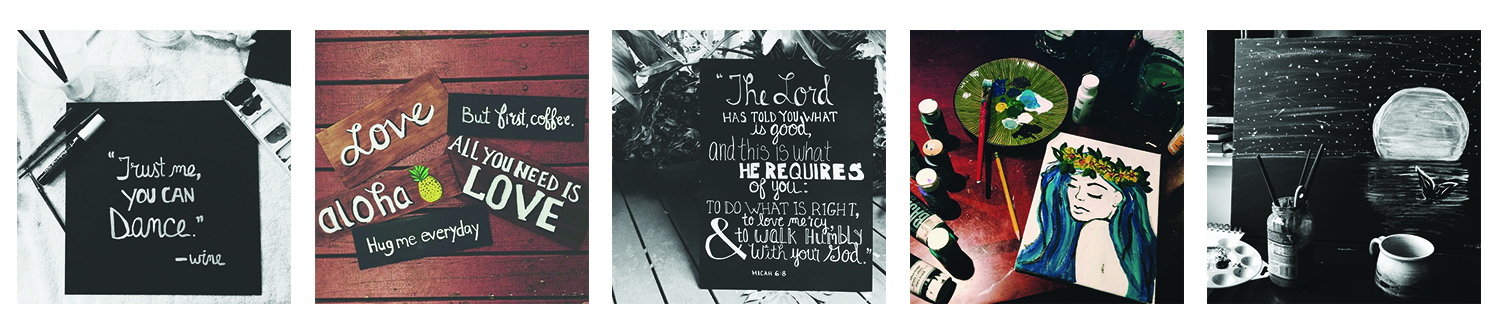 "Trust me,
YOU CAN
Dance."
-wine
Love
But first, coffee.
ALL YOU NEED IS
LOVE
aloha
Hug me everyday
"The Lord
HAS TOLD YOU WHAT
is good,
and this is what
HE REQUIRES
of you:
TO DO WHAT IS RIGHT,
to love mercy,
& to WALK HUMBLY
With your God."
MICAH 6:8